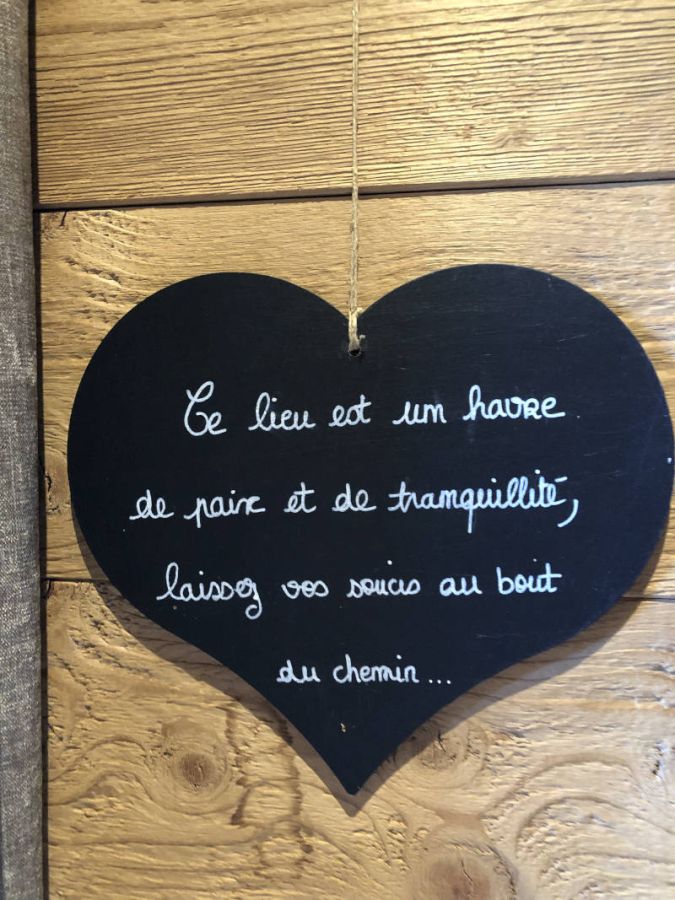 Ce lieu est un havre
de paix et de tranquillité,
laissez vos soucis au bout
du chemin...